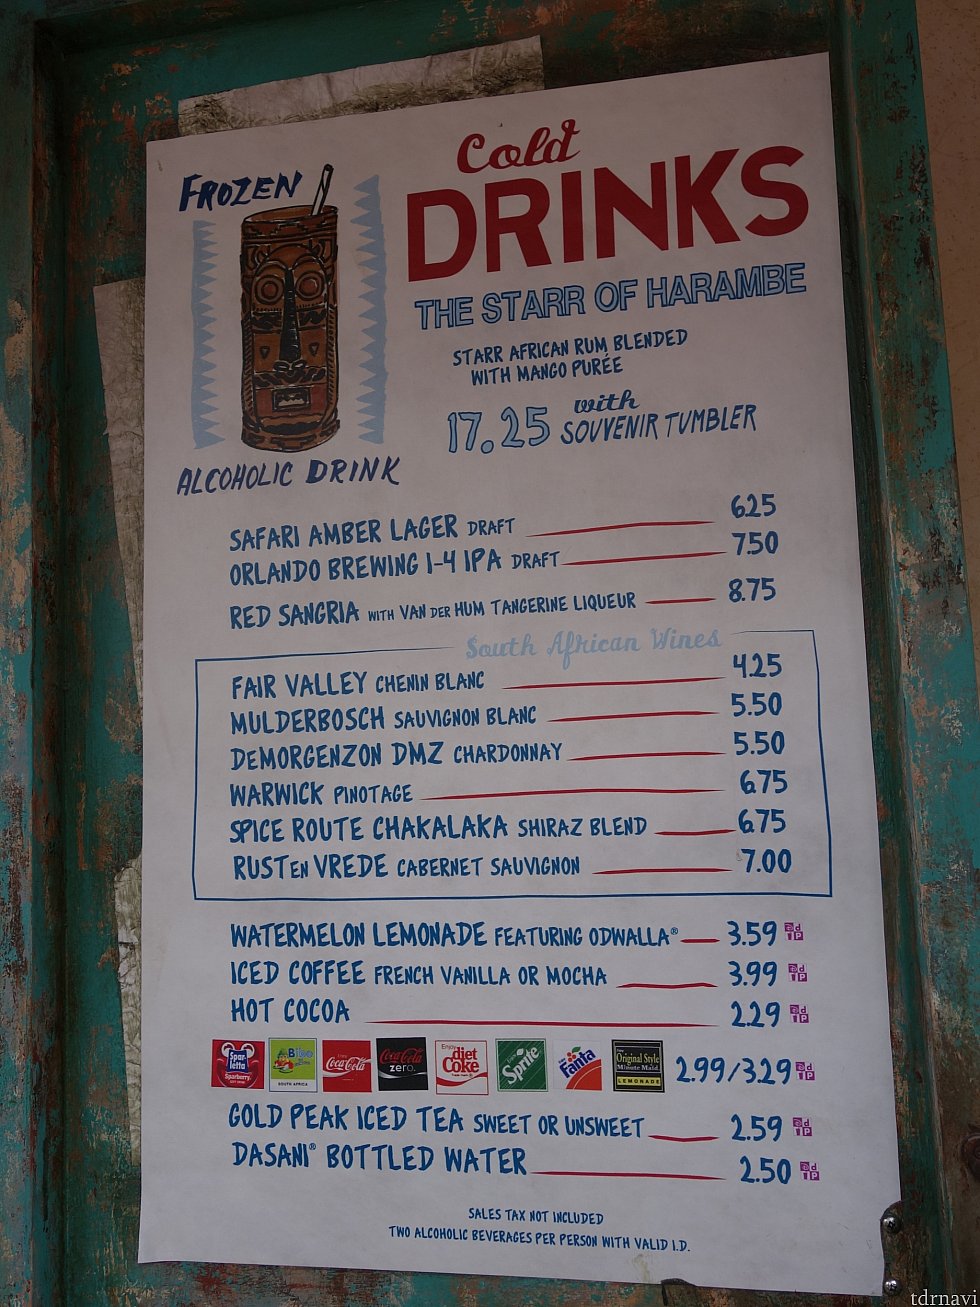 FROZEN
ALCOHOLIC DRINK
Cold
DRINKS
THE STARR OF HARAMBE
STARR AFRICAN RUM BLENDED
WITH MANGO PURÉE
17.25 with SOUVENIR TUMBLER
SAFARI AMBER LAGER DRAFT 6.25
ORLANDO BREWING I-4 IPA DRAFT 7.50
RED SANGRIA WITH VAN DER HUM TANGERINE LIQUEUR 8.75
South African Wines
FAIR VALLEY CHENIN BLANC 4.25
MULDERBOSCH SAUVIGNON BLANC 5.50
DEMORGENZON DMZ CHARDONNAY 5.50
WARWICK PINOTAGE 6.75
SPICE ROUTE CHAKALAKA SHIRAZ BLEND 6.75
RUST EN VREDE CABERNET SAUVIGNON 7.00
WATERMELON LEMONADE FEATURING ODWALLA® 3.59
ICED COFFEE FRENCH VANILLA OR MOCHA 3.99
HOT COCOA 2.29
Spar-letta Sparberry Bibo SOUTH AFRICA Coca-Cola Coca-Cola zero. Enjoy diet Coke Sprite Fanta Original Style Minute Maid LEMONADE 2.99/3.29
GOLD PEAK ICED TEA SWEET OR UNSWEET 2.59
DASANI® BOTTLED WATER 2.50
SALES TAX NOT INCLUDED
TWO ALCOHOLIC BEVERAGES PER PERSON WITH VALID I.D.
tdrnavi